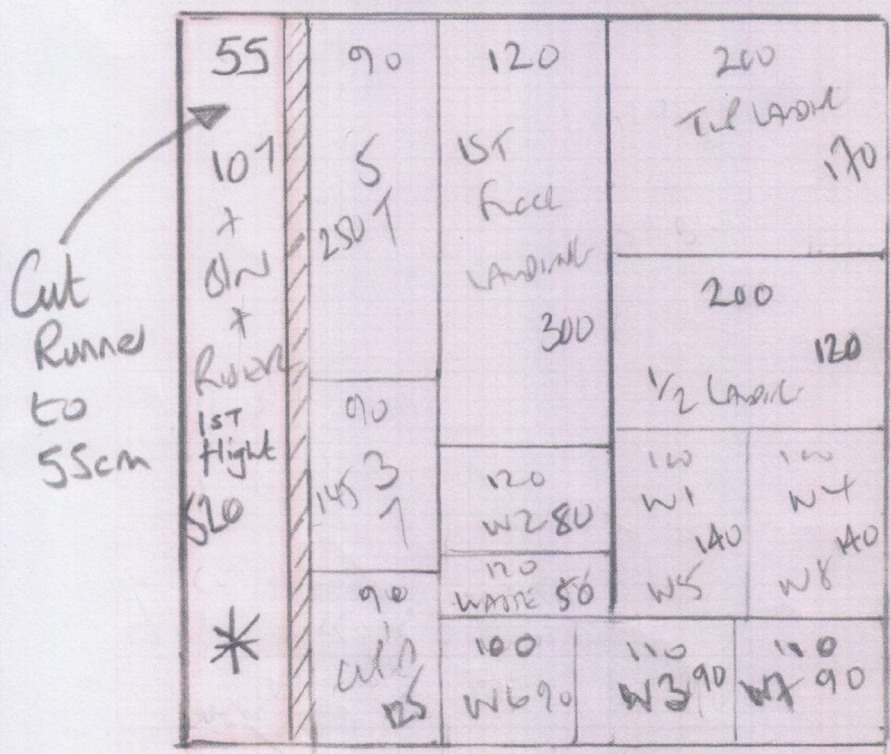 Cut
Runner
to
55cm
55
107
+
+
1ST
flight
520
*
90
5
250 T
90
145 3
90
125
120
1ST
Floor
LANDING
300
120
W2 80
120
WASTE 50
100
W6 90
200
LANDING
170
200
120
1/2 LANDING
100
W1
140
W5
100
W4
140
W8
110
W3 90
110
W7 90